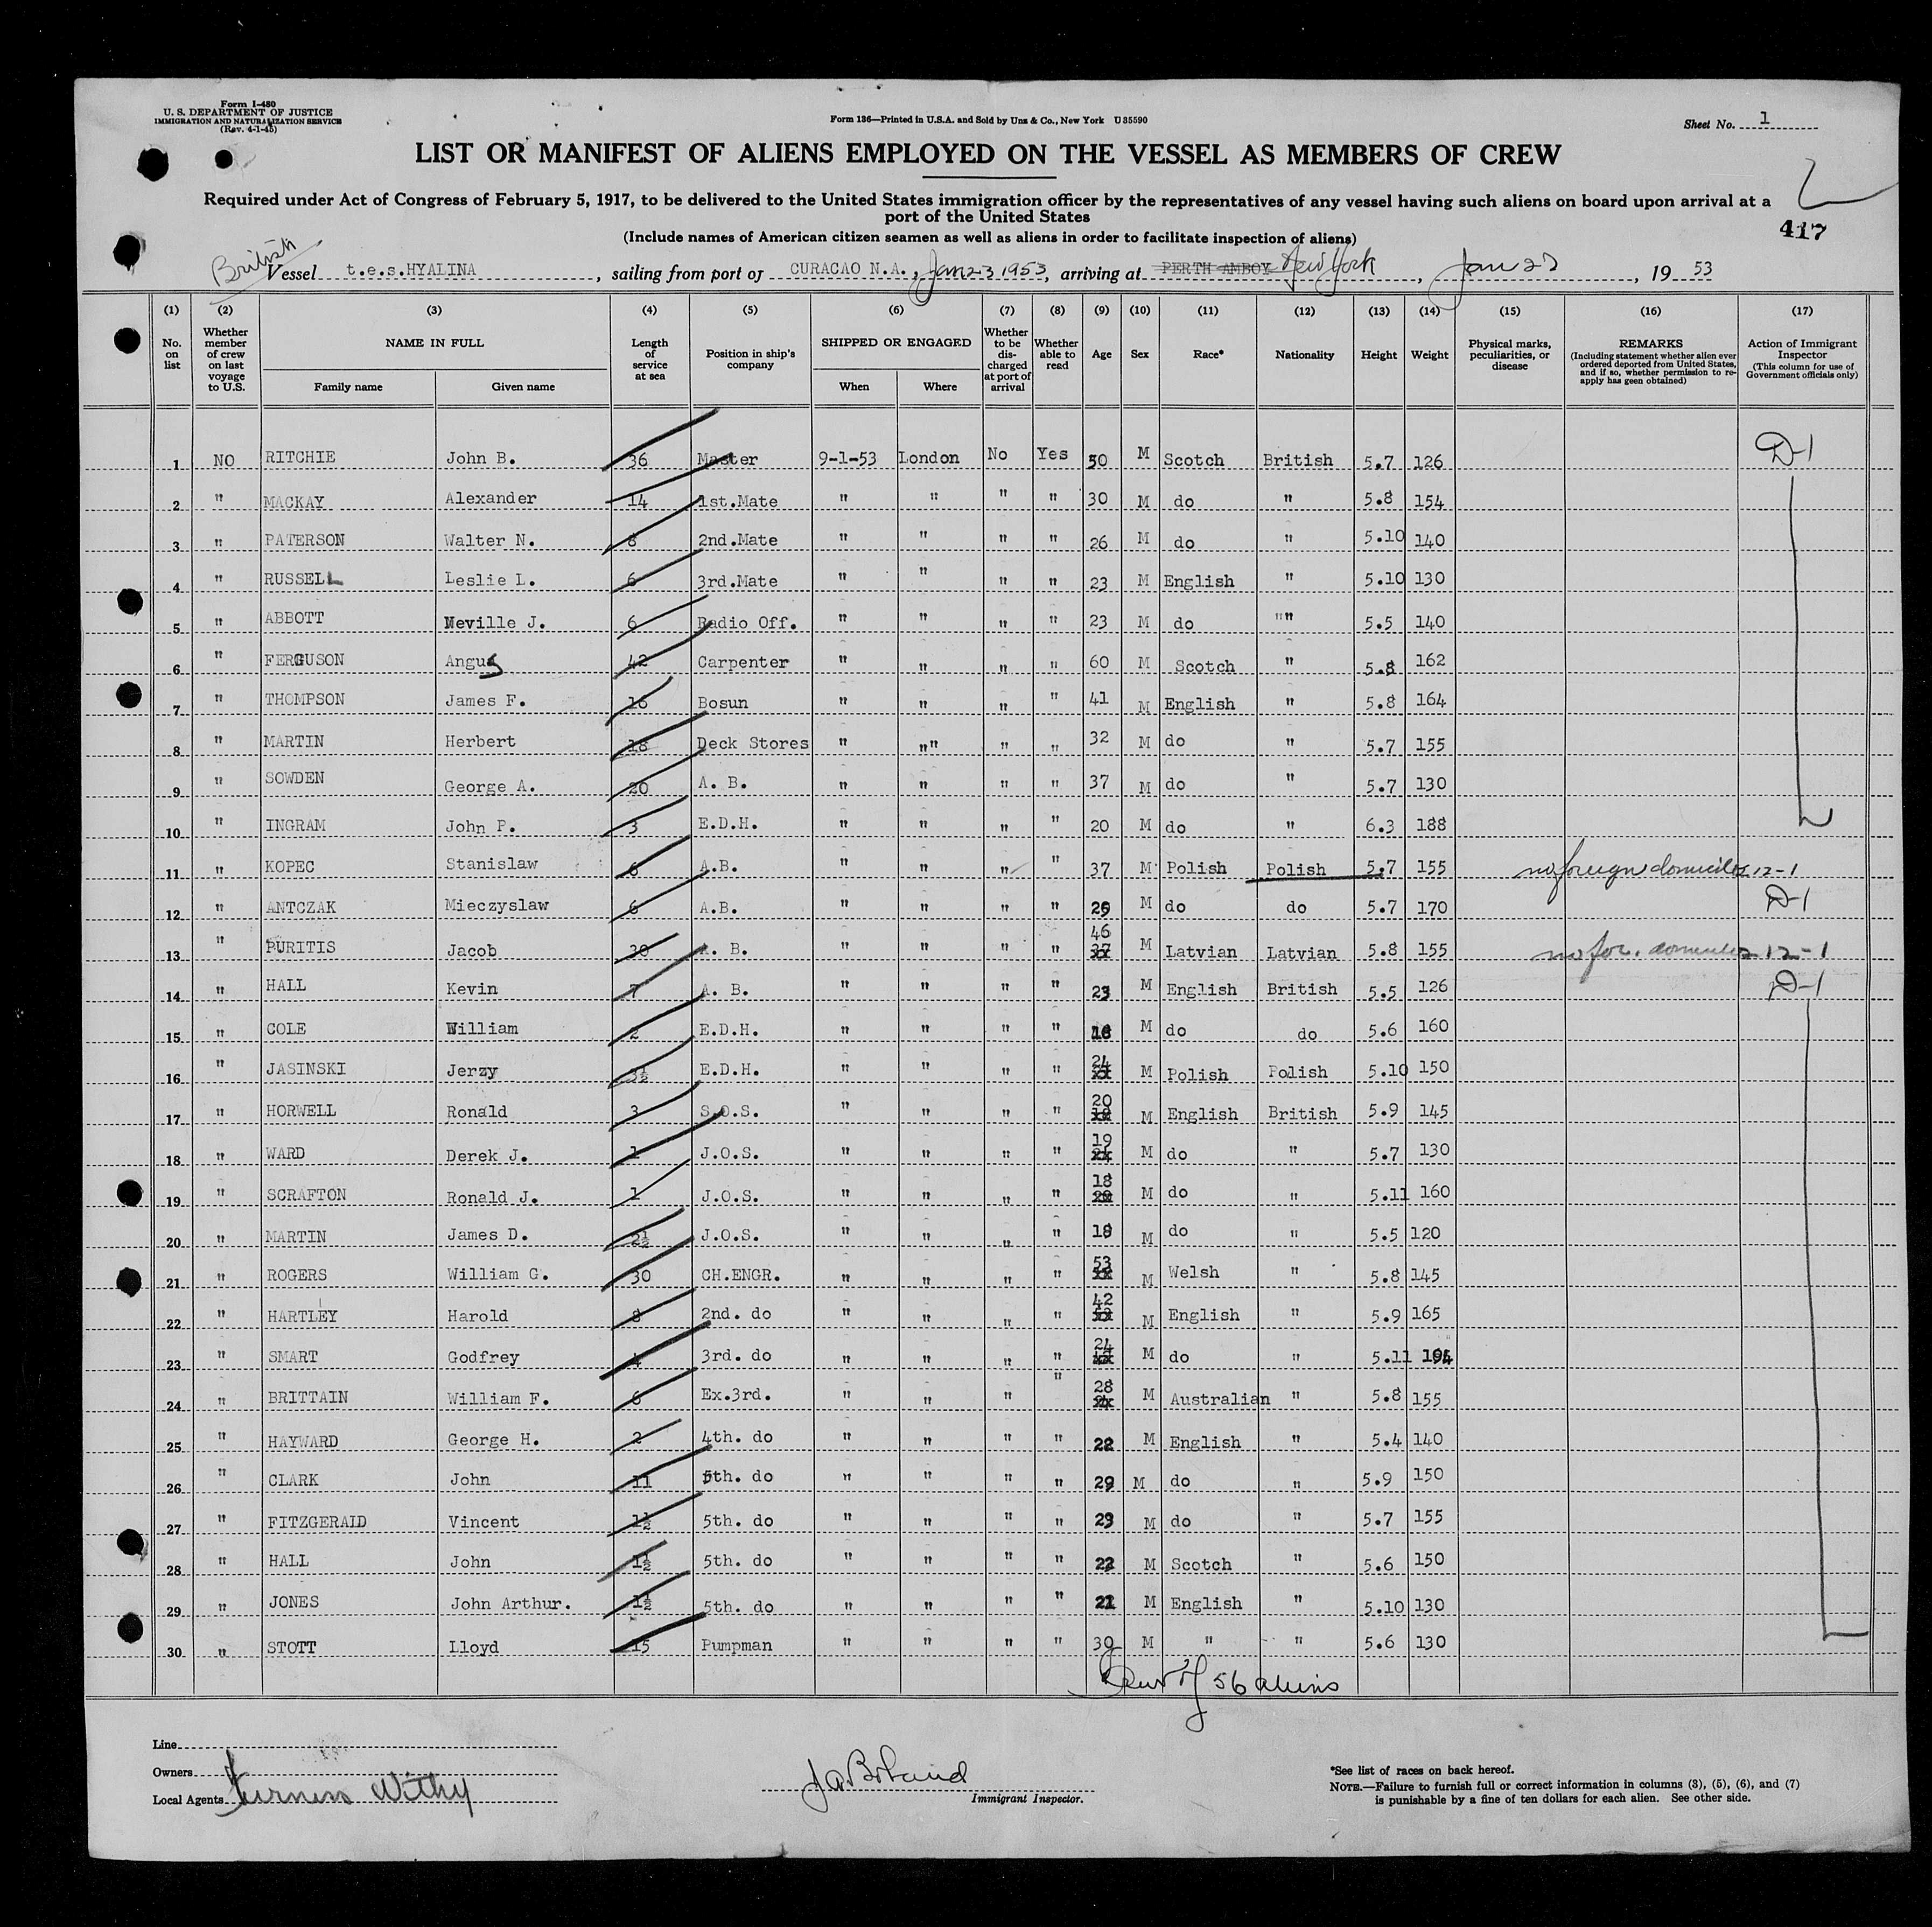 Form I-480
U. S. DEPARTMENT OF JUSTICE
IMMIGRATION AND NATURALIZATION SERVICE
(Rev. 4-1-45)
Form 136—Printed in U.S.A. and Sold by Unz & Co., New York U 35590
Sheet No. 1
LIST OR MANIFEST OF ALIENS EMPLOYED ON THE VESSEL AS MEMBERS OF CREW
Required under Act of Congress of February 5, 1917, to be delivered to the United States immigration officer by the representatives of any vessel having such aliens on board upon arrival at a
port of the United States
417
(Include names of American citizen seamen as well as aliens in order to facilitate inspection of aliens)
British
Vessel t.e.s.HYALINA, sailing from port of CURACAO N.A., Jan 23 1953, arriving at PERTH AMBOY New York, Jan 2, 19 53
(1) (2) (3) (4) (5) (6) (7) (8) (9) (10) (11) (12) (13) (14) (15) (16) (17)
No. on list
Whether member of crew on last voyage to U.S.
NAME IN FULL
Family name Given name
Length of service at sea
Position in ship's company
SHIPPED OR ENGAGED
When Where
Whether to be discharged at port of arrival
Whether able to read
Age
Sex
Race*
Nationality
Height
Weight
Physical marks, peculiarities, or disease
REMARKS
(Including statement whether alien ever ordered deported from United States, and if so, whether permission to re-apply has geen obtained)
Action of Immigrant Inspector
(This column for use of Government officials only)
1 NO RITCHIE John B. 36 Master 9-1-53 London No Yes 50 M Scotch British 5.7 126 D-1
2 " MACKAY Alexander 14 1st.Mate " " " " 30 M do " 5.8 154
3 " PATERSON Walter N. 8 2nd.Mate " " " " 26 M do " 5.10 140
4 " RUSSELL Leslie L. 6 3rd.Mate " " " " 23 M English " 5.10 130
5 " ABBOTT Neville J. 6 Radio Off. " " " " 23 M do "" 5.5 140
6 " FERGUSON Angus 42 Carpenter " " " " 60 M Scotch " 5.8 162
7 " THOMPSON James F. 16 Bosun " " " " 41 M English " 5.8 164
8 " MARTIN Herbert 18 Deck Stores " "" " " 32 M do " 5.7 155
9 " SOWDEN George A. 20 A. B. " " " " 37 M do " 5.7 130
10 " INGRAM John P. 3 E.D.H. " " " " 20 M do " 6.3 188
11 " KOPEC Stanislaw 6 A.B. " " " " 37 M Polish Polish 5.7 155 no foreign domicile 12-1
12 " ANTCZAK Mieczyslaw 6 A.B. " " " " M do do 5.7 170 D-1
13 " PURITIS Jacob 30 A. B. " " " " 46 M Latvian Latvian 5.8 155 no for. domicile 12-1
14 " HALL Kevin 7 A. B. " " " " 23 M English British 5.5 126 D-1
15 " COLE William 2 E.D.H. " " " " M do do 5.6 160
16 " JASINSKI Jerzy 3½ E.D.H. " " " " 24 M Polish Polish 5.10 150
17 " HORWELL Ronald 3 S.O.S. " " " " 20 M English British 5.9 145
18 " WARD Derek J. 1 J.O.S. " " " " 19 M do " 5.7 130
19 " SCRAFTON Ronald J. 1 J.O.S. " " " " 18 M do " 5.11 160
20 " MARTIN James D. 2½ J.O.S. " " " " 18 M do " 5.5 120
21 " ROGERS William G. 30 CH.ENGR. " " " " 53 M Welsh " 5.8 145
22 " HARTLEY Harold 8 2nd. do " " " " 42 M English " 5.9 165
23 " SMART Godfrey 4 3rd. do " " " " 24 M do " 5.11
24 " BRITTAIN William F. 6 Ex.3rd. " " " " 28 M Australian " 5.8 155
25 " HAYWARD George H. 2 4th. do " " " " 22 M English " 5.4 140
26 " CLARK John 11 5th. do " " " " 29 M do " 5.9 150
27 " FITZGERALD Vincent 1½ 5th. do " " " " 23 M do " 5.7 155
28 " HALL John 1½ 5th. do " " " " 22 M Scotch " 5.6 150
29 " JONES John Arthur. 1½ 5th. do " " " " 21 M English " 5.10 130
30 " STOTT Lloyd 15 Pumpman " " " " 39 M " " 5.6 130
Crew of 56 aliens
Line
Owners
Local Agents Furness Withy
Immigrant Inspector.
*See list of races on back hereof.
NOTE.—Failure to furnish full or correct information in columns (3), (5), (6), and (7)
is punishable by a fine of ten dollars for each alien. See other side.